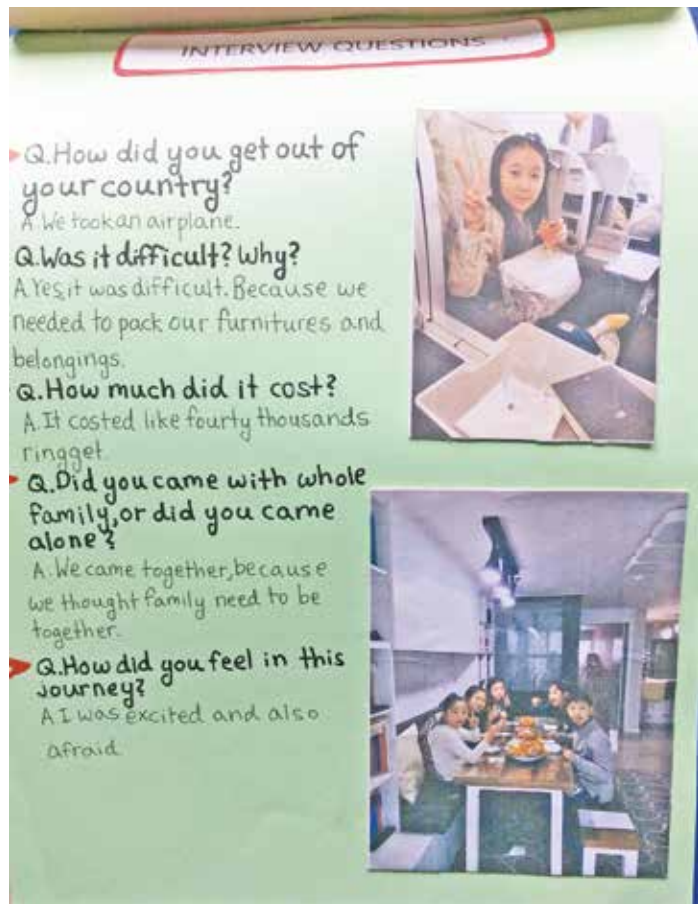 INTERVIEW QUESTIONS
Q.How did you get out of
your country?
A.We took an airplane.
Q.Was it difficult? Why?
A.Yes, it was difficult. Because we
needed to pack our furnitures and
belongings.
Q.How much did it cost?
A.It costed like fourty thousands
ringget.
Q.Did you came with whole
family, or did you came
alone?
A.We came together, because
we thought family need to be
together.
Q.How did you feel in this
journey?
A I was excited and also
afraid